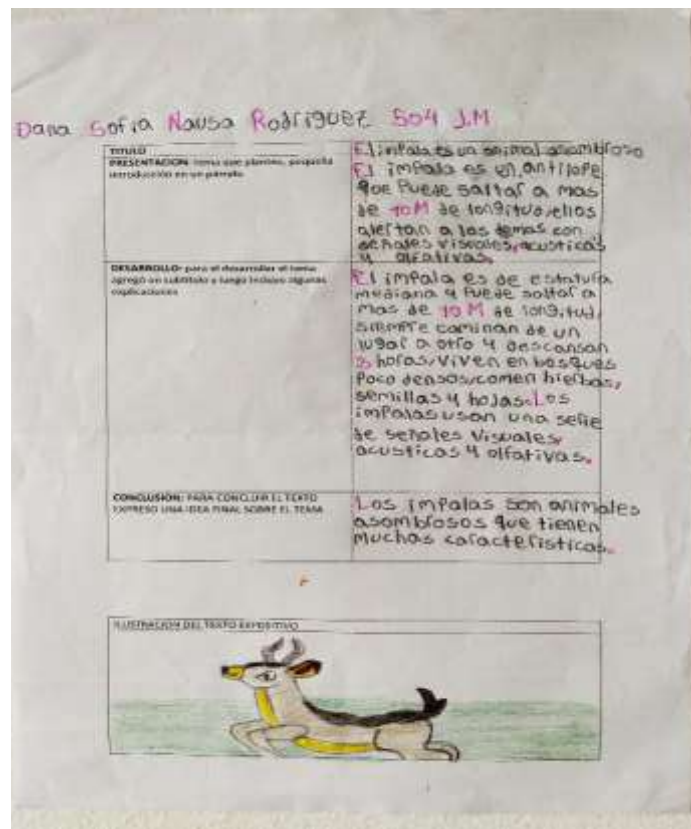 Dana Sofia Nausa Rodriguez 504 J.M
TITULO
El impala es un animal asombroso
PRESENTACION: tema que planteo, pequeña
introducción en un párrafo.
El impala es un antilope
que Puede saltar a mas
de 10 M de longitud, ellos
alertan a los demas con
señales visuales, acusticas
y olfativas.
DESARROLLO: para el desarrollar el tema
agregó un subtitulo y luego incluyo algunas
explicaciones
El impala es de estatura
mediana y Puede saltar a
mas de 10 M de longitud,
siempre caminan de un
lugar a otro y descansan
horas, viven en bosques
Poco densos, comen hierbas,
semillas y hojas. Los
impalas usan una serie
de señales visuales,
acusticas y olfativas.
CONCLUSION: PARA CONCLUIR EL TEXTO
EXPRESO UNA IDEA FINAL SOBRE EL TEMA
Los impalas son animales
asombrosos que tienen
muchas caracteristicas.
ILUSTRACION DEL TEXTO EXPOSITIVO